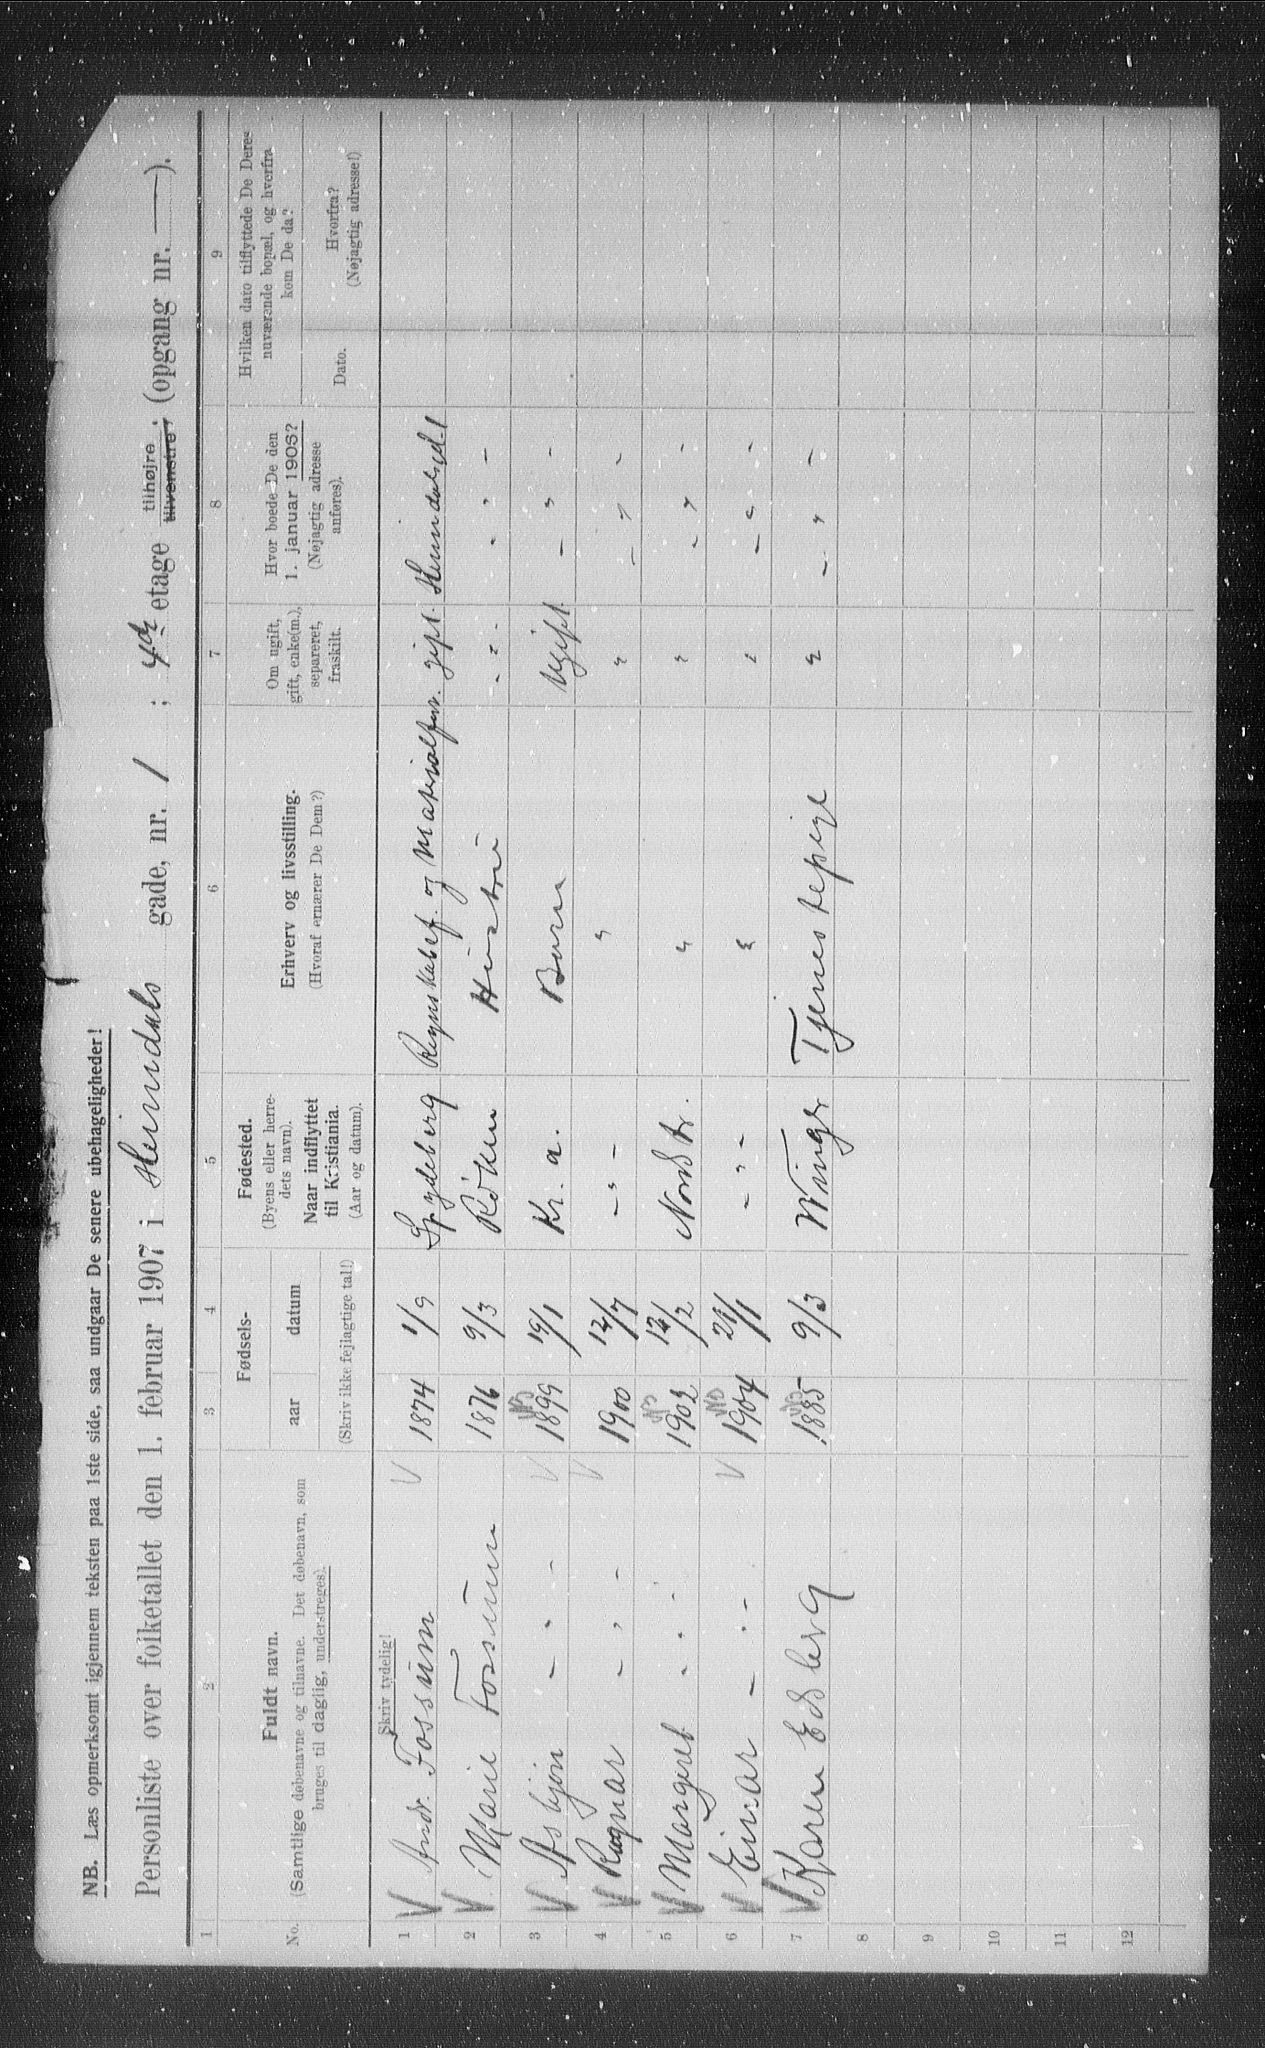 NB. Læs opmerksomt igjennem teksten paa 1ste side, saa undgaar De senere ubehageligheder!
Personliste over folketallet den 1. februar 1907 i Heimdals gade, nr. 1 ; 4de etage tilhøjre tilvenstre ; (opgang nr. — ).
1 2 3 4 5 6 7 8 9
No. Fuldt navn. (Samtlige døbenavne og tilnavne. Det døbenavn, som bruges til daglig, understreges). Fødsels- aar datum (Skriv ikke fejlagtige tal!) Fødested. (Byens eller herredets navn). Naar indflyttet til Kristiania. (Aar og datum). Erhverv og livsstilling. (Hvoraf ernærer De Dem?) Om ugift, gift, enke(m.), separeret, fraskilt. Hvor boede De den 1. januar 1906? (Nøjagtig adresse anføres). Hvilken dato tilflyttede De Deres nuværende bopæl, og hvorfra kom De da? Dato. Hvorfra? (Nøjagtig adresse!)
Skriv tydelig!
1 V Andr. Fossum V 1874 1/9 Spydeberg Regnskabsf. og Materialforv. gift. Heimdalsgd. 1
2 V Marie Fossum 1876 9/3 Röken Hustru - " - - " -
3 V Asbjörn - " - V 1899 19/1 Kr. a. Barn Ugift - " -
4 V Ragnar - " - V 1900 12/7 - " - " " - " -
5 V Margret - " - 1902 12/2 Nordstr. " " - " -
6 V Einar - " - V 1904 21/1 - " - " " - " -
7 V Karen Edberg 1885 9/3 Winger Tjenestepige " - " -
8
9
10
11
12